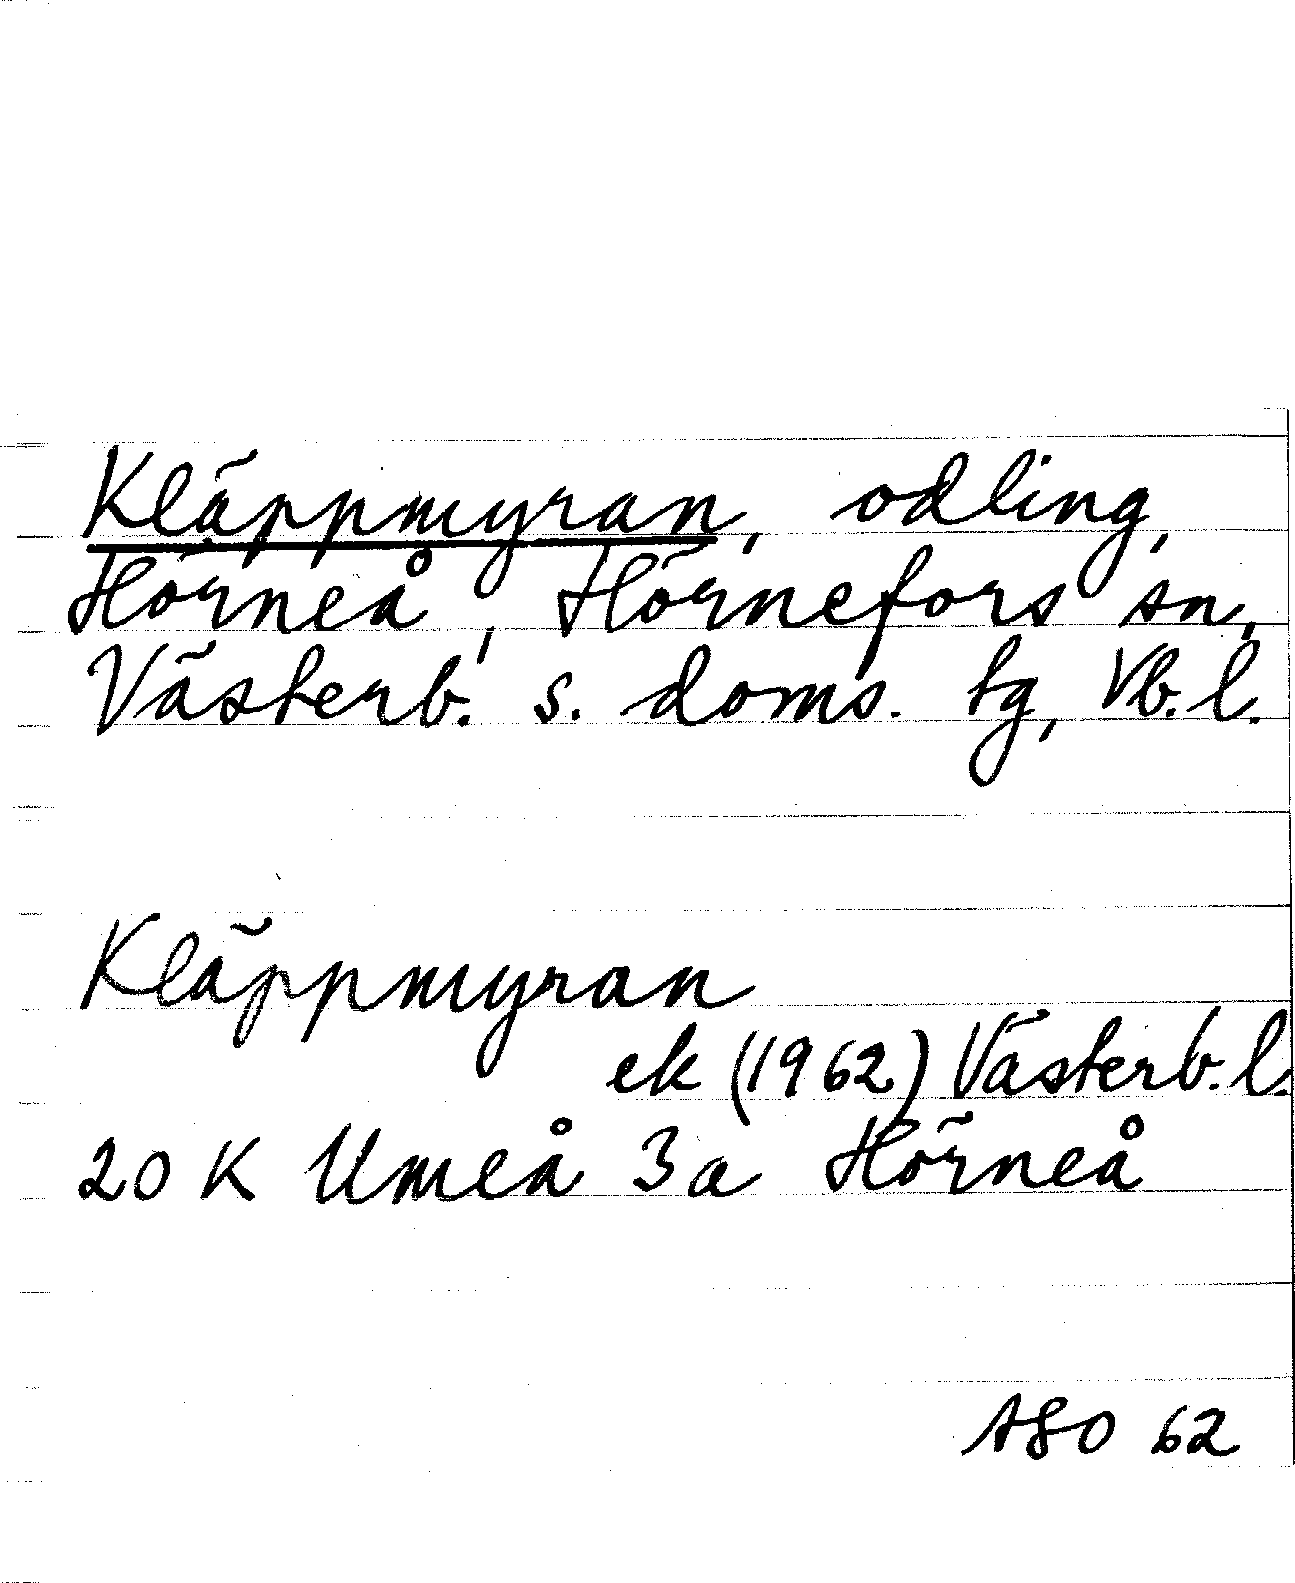 Kläppmyran, odling,
Hörneå, Hörnefors sn,
Västerb. s. doms. tg, Vb. l.
Kläppmyran
ek (1962) Västerb. l.
20 K Umeå 3a Hörneå
62